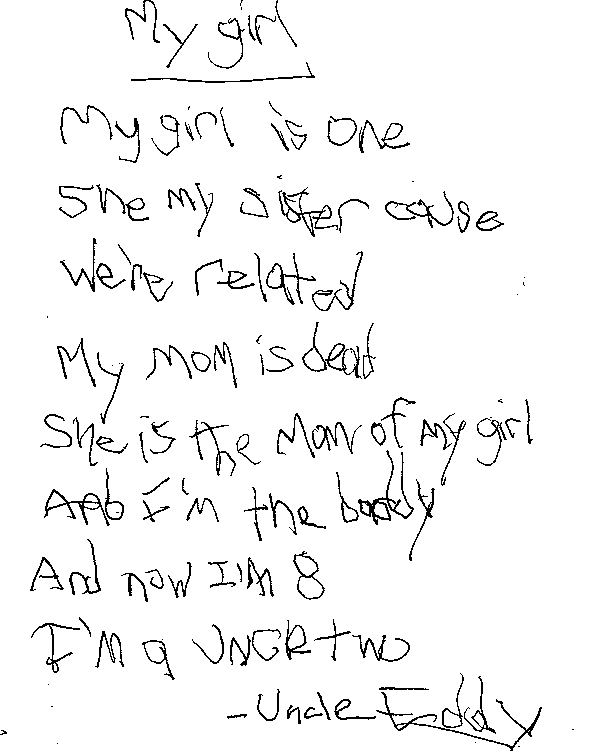 My girl
My girl is one
She my sister cause
we're related
My mom is dead
She is the Mom of my girl
And I'm the baddy
And now I'm 8
I'm a UNCR two
-Uncle Eddy